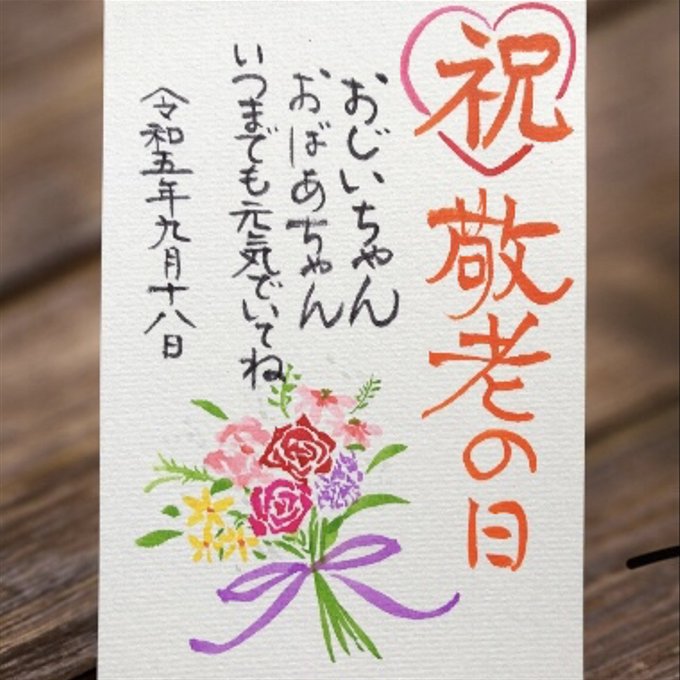 祝
敬老の日
おじいちゃん
おばあちゃん
いつまでも元気でいてね
令和五年九月十八日